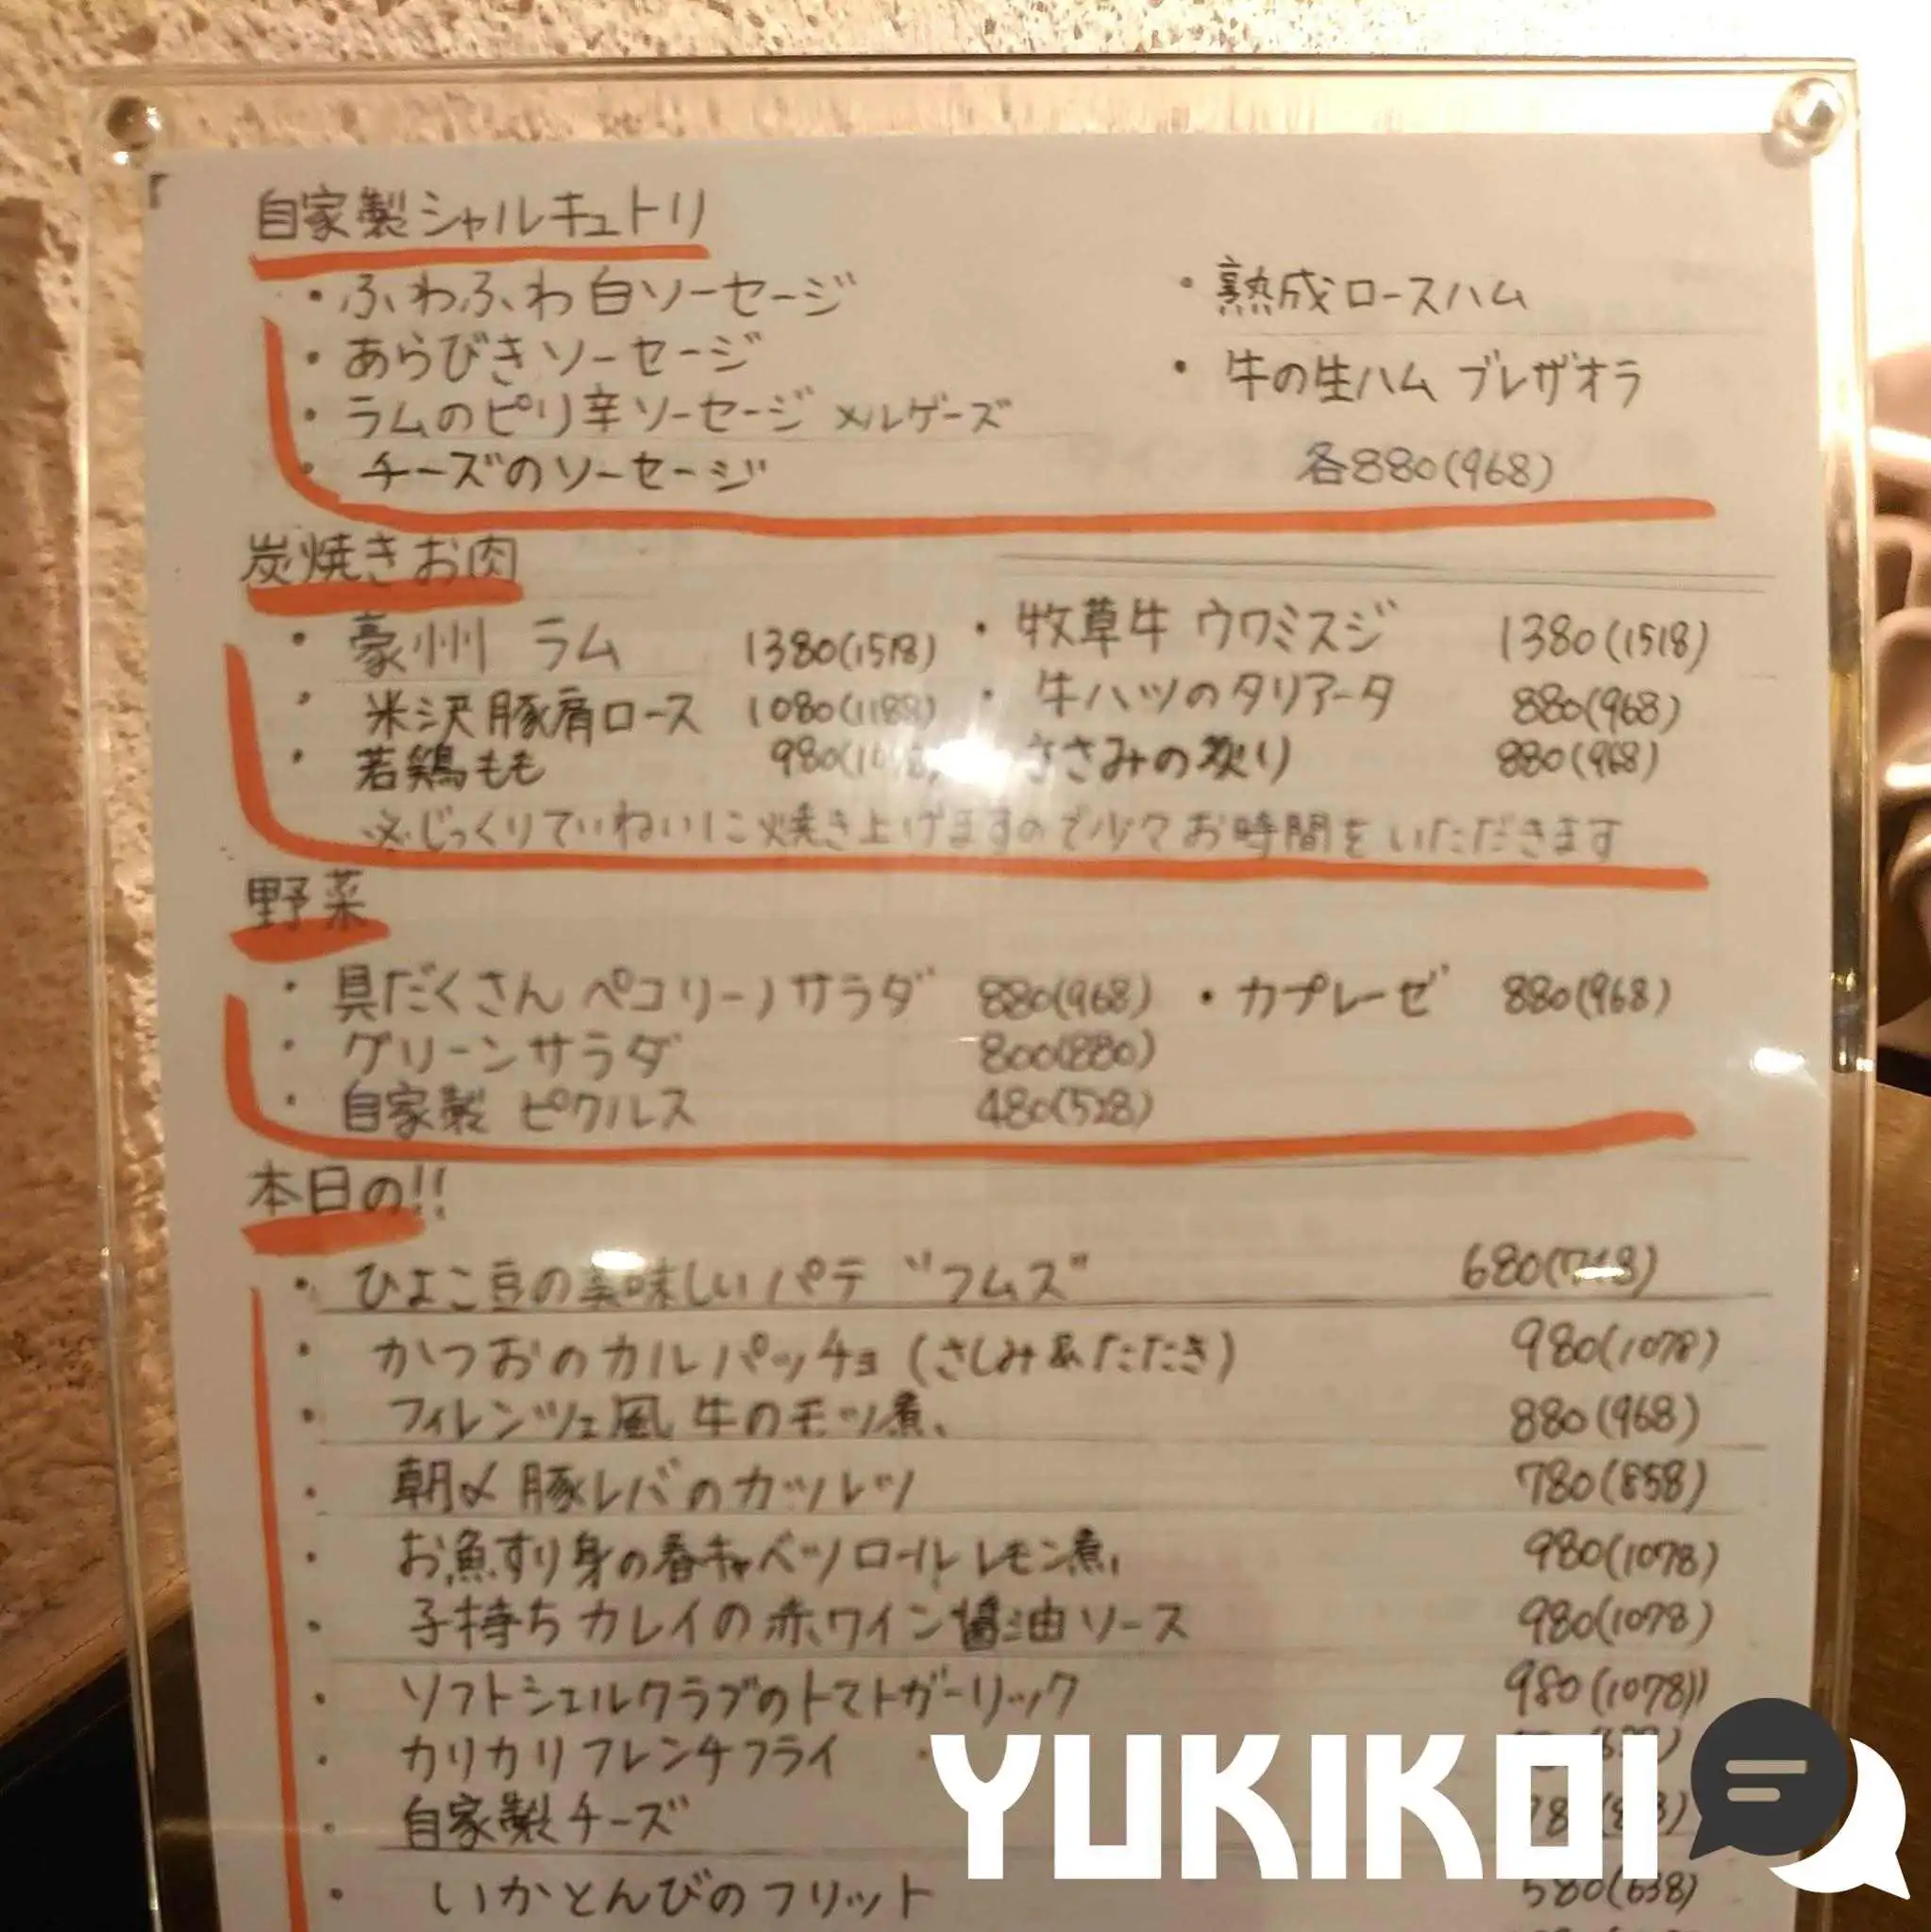 自家製シャルキュトリ
・ふわふわ白ソーセージ ・熟成ロースハム
・あらびきソーセージ ・牛の生ハム ブレザオラ
・ラムのピリ辛ソーセージ メルゲーズ
・チーズのソーセージ 各880(968)
炭焼きお肉
・豪州 ラム 1380(1518) ・牧草牛 ウワミスジ 1380(1518)
・米沢豚肩ロース 1080(1188) ・牛ハツのタリアータ 880(968)
・若鶏もも 980 ささみの炙り 880(968)
※じっくりていねいに焼き上げますので少々お時間をいただきます
野菜
・具だくさん ペコリーノサラダ 880(968) ・カプレーゼ 880(968)
・グリーンサラダ 800(880)
・自家製 ピクルス 480(528)
本日の!!
・ひよこ豆の美味しいパテ "フムス" 680
・かつおのカルパッチョ (さしみ&たたき) 980(1078)
・フィレンツェ風 牛のモツ煮 880(968)
・朝〆 豚レバのカツレツ 780(858)
・お魚すり身の春キャベツロール レモン煮 980(1078)
・子持ちカレイの赤ワイン醤油ソース 980(1078)
・ソフトシェルクラブのトマトガーリック 980(1078)
・カリカリフレンチフライ
・自家製チーズ
・いかとんびのフリット 580(638)
YUKIKOI